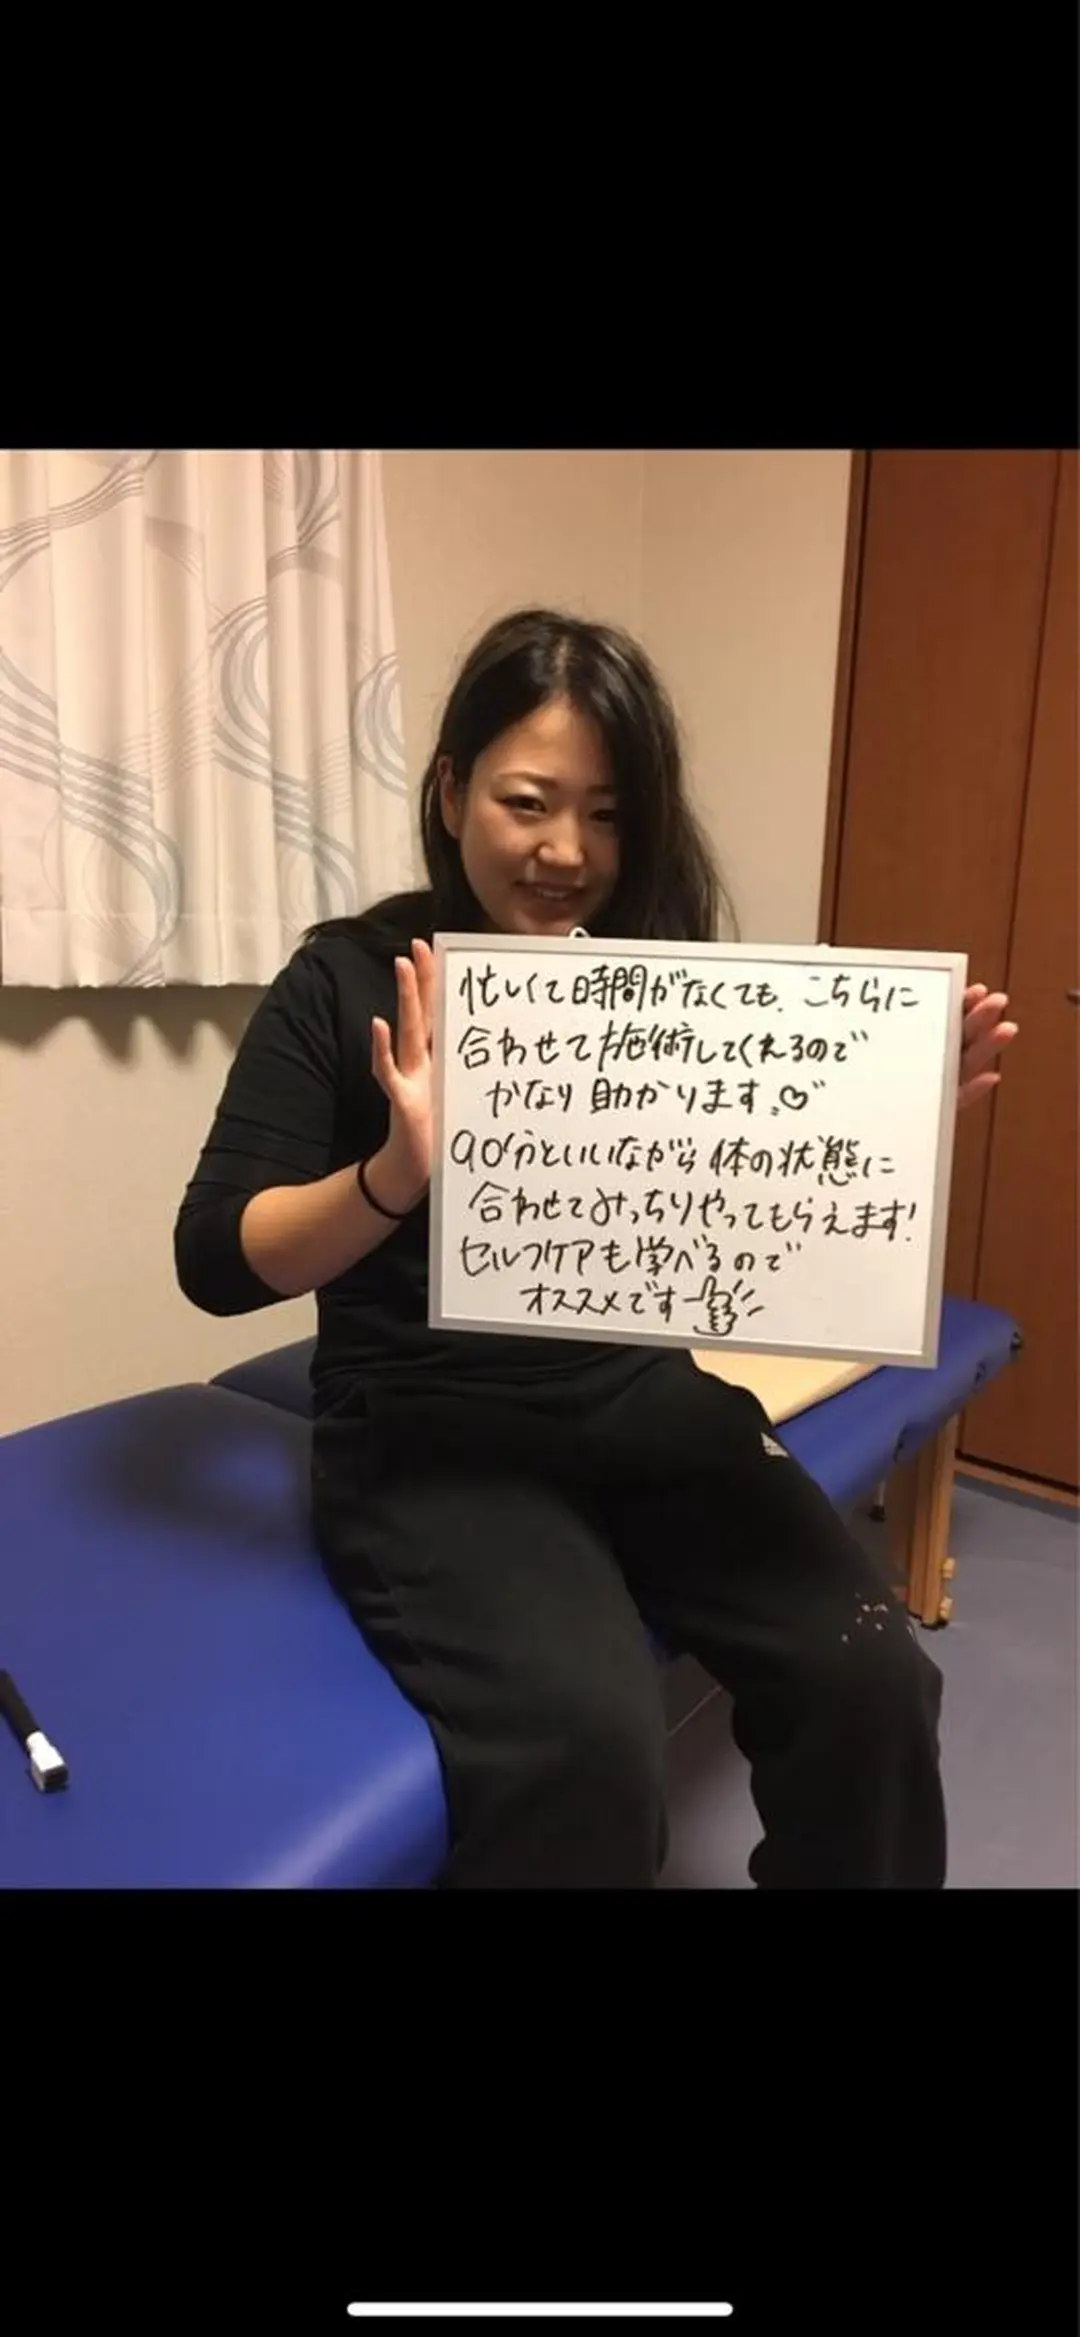 忙しくて時間がなくても、こちらに
合わせて施術してくれるので
かなり助かります。♡
90分といいながら体の状態に
合わせてみっちりやってもらえます!
セルフケアも学べるので
オススメです